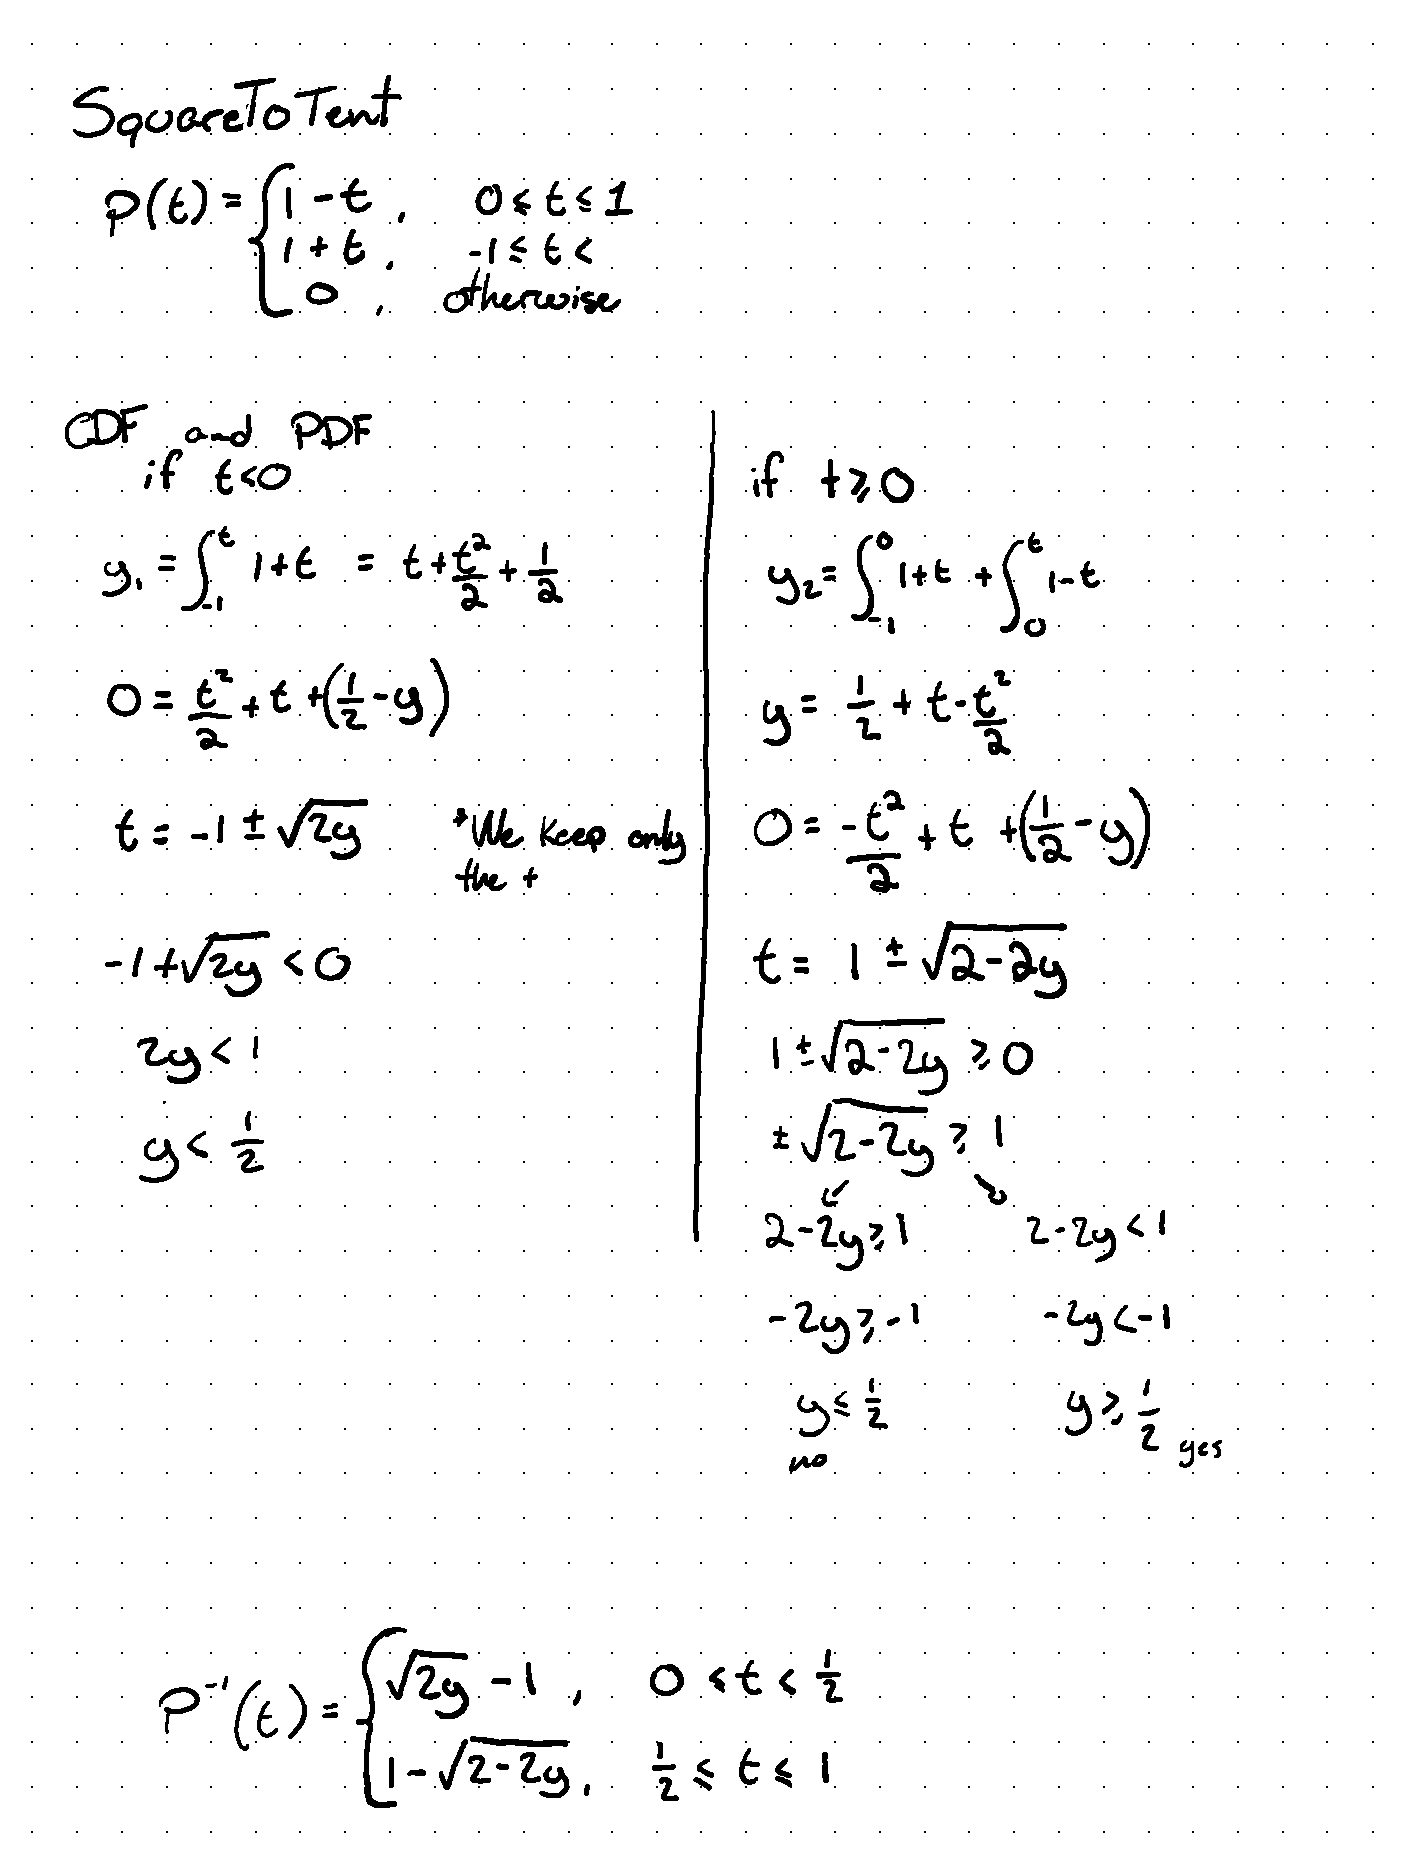 SquareToTent
p(t) = { 1 - t , 0 ≤ t ≤ 1
1 + t , -1 ≤ t <
0 , otherwise
CDF and PDF
if t < 0
y₁ = ∫₋₁ᵗ 1+t = t + t²/2 + 1/2
0 = t²/2 + t + (1/2 - y)
t = -1 ± √(2y) *We keep only
the +
-1 + √(2y) < 0
2y < 1
y < 1/2
if t ≥ 0
y₂ = ∫₋₁⁰ 1+t + ∫₀ᵗ 1-t
y = 1/2 + t - t²/2
0 = -t²/2 + t + (1/2 - y)
t = 1 ± √(2-2y)
1 ± √(2-2y) ≥ 0
± √(2-2y) ≥ 1
↙ ↘
2-2y ≥ 1 2-2y < 1
-2y ≥ -1 -2y < -1
y ≤ 1/2 y ≥ 1/2
no yes
P⁻¹(t) = { √(2y) - 1 , 0 ≤ t < 1/2
1 - √(2-2y) , 1/2 ≤ t ≤ 1